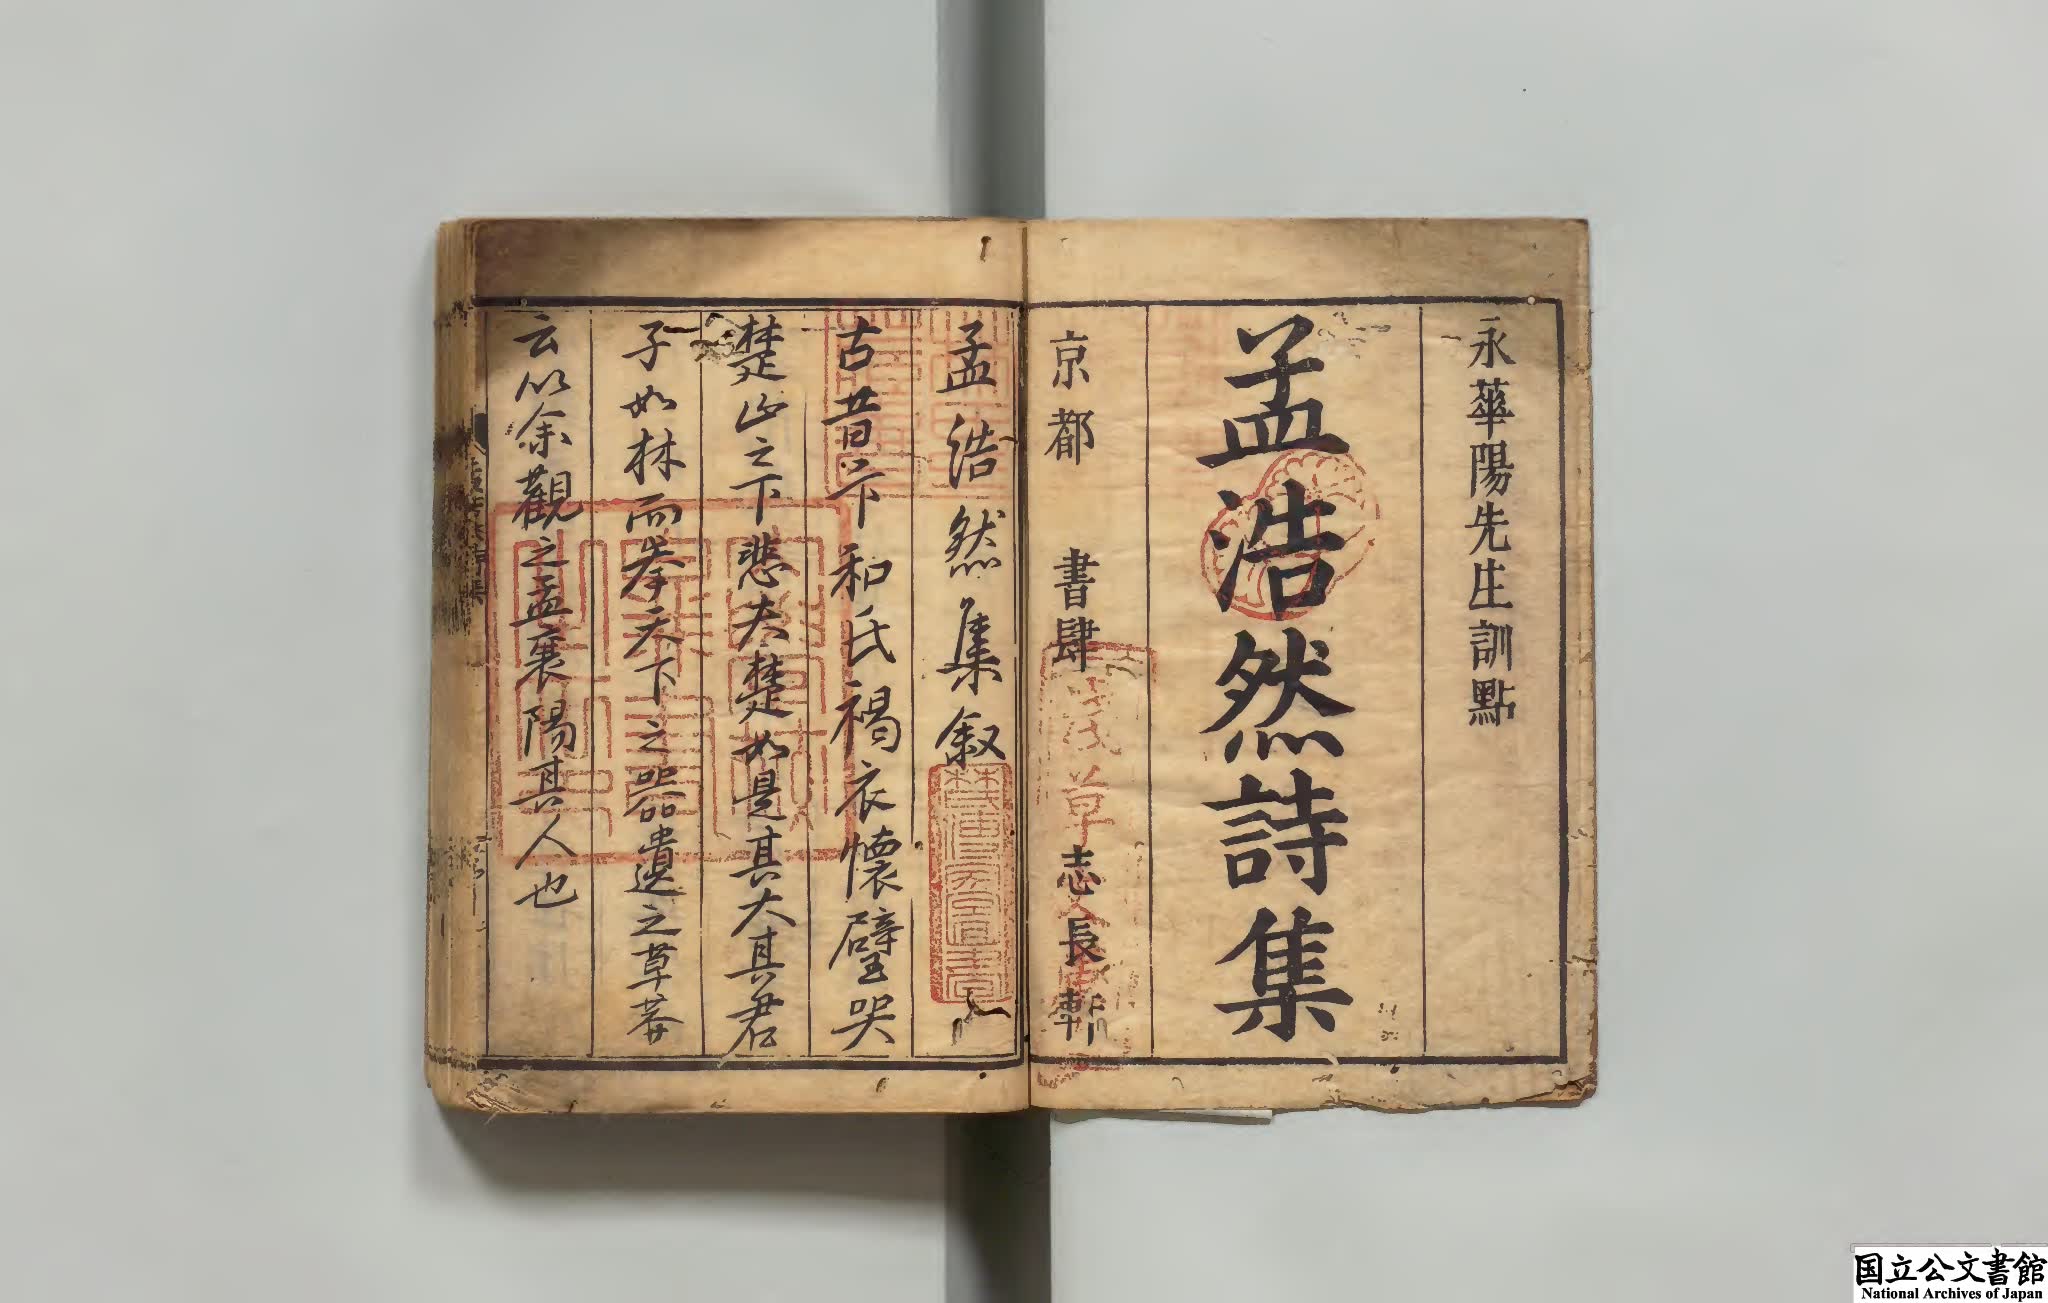 永華陽先生訓點
孟浩然詩集
京都 書肆 志長軒
孟浩然集叙
古昔卞和氏褐衣懷璧哭
楚山之下悲夫楚如是其大其君
子如林而奉天下之器遺之草莽
云以余觀之孟襄陽其人也
国立公文書館
National Archives of Japan